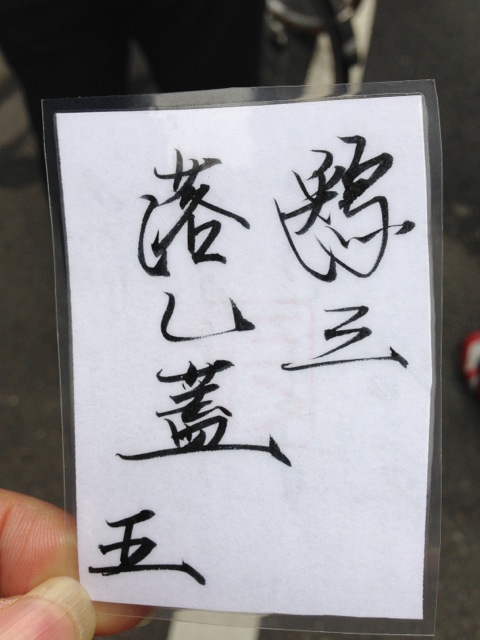 三
落し蓋 五